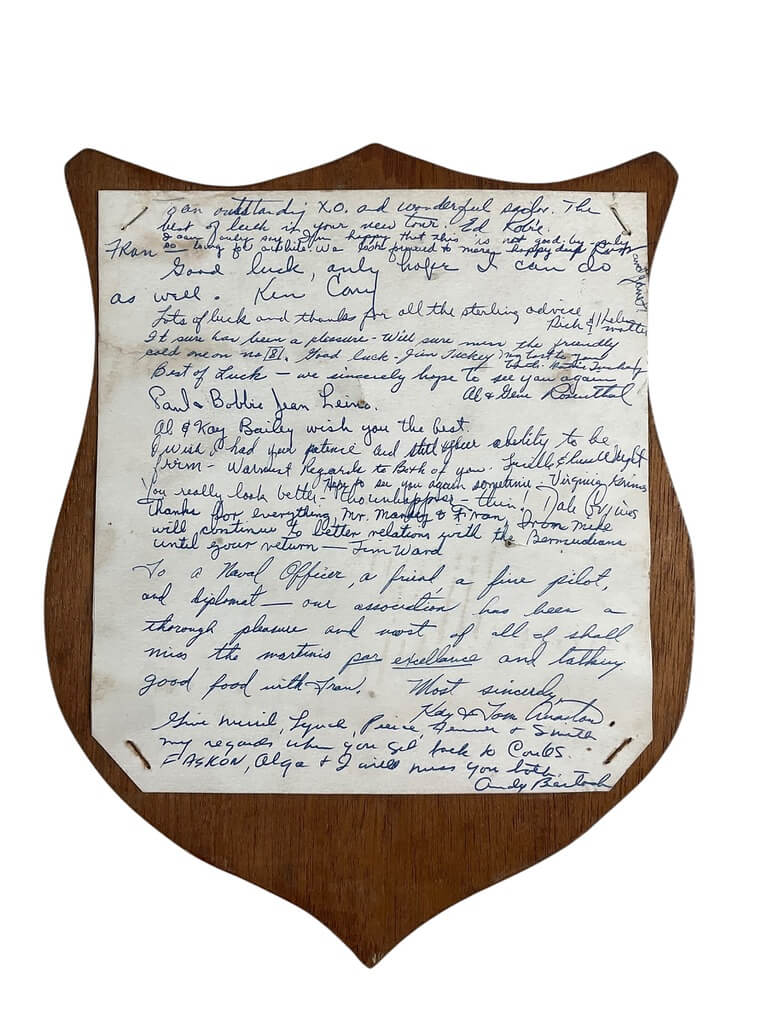 an outstanding X.O. and wonderful sailor. The
best of luck in your new tour. Ed
I can only say I'm happy that this is not good by - only
so long for awhile. We look forward to more happy days
Fran
Good luck, only hope I can do
as well. Ken
Lots of luck and thanks for all the sterling advice
Dick &
It sure has been a pleasure - Will sure miss the friendly
cold one on no 181. Good luck - Jim Tuckey
Best of Luck - we sincerely hope to see you again
Al & Gene Rosenthal
Paul & Bobbie Jean Leino.
Al & Kay Bailey wish you the best.
I wish I had your patience and still your ability to be
firm - Warmest Regards to Both of you.
Hope to see you again sometime - Virginia
You really look better - tho unhappier - thin! Dale
Thanks for everything, Mr. & Fran, from Mike
will continue to better relations with the Bermudians
until your return - Jim Ward
To a Naval Officer, a friend, a fine pilot,
and diplomat - our association has been a
thorough pleasure and most of all I shall
miss the martinis par excellance and talking
good food with Fran. Most sincerely,
Kay & Tom
Give Merril, Lynch, Pierce, Fenner & Smith
my regards when you get back to
FASRON, Olga & I will miss you both.
Andy